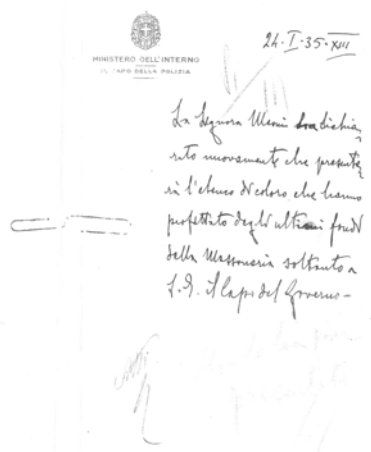 MINISTERO DELL'INTERNO
IL CAPO DELLA POLIZIA
24·I·35·XIII
La Signora ha dichia-
rato nuovamente che presente-
rà l'elenco di coloro che hanno
profittato degli ultimi fondi
della Massoneria soltanto a
S. E. il Capo del Governo-